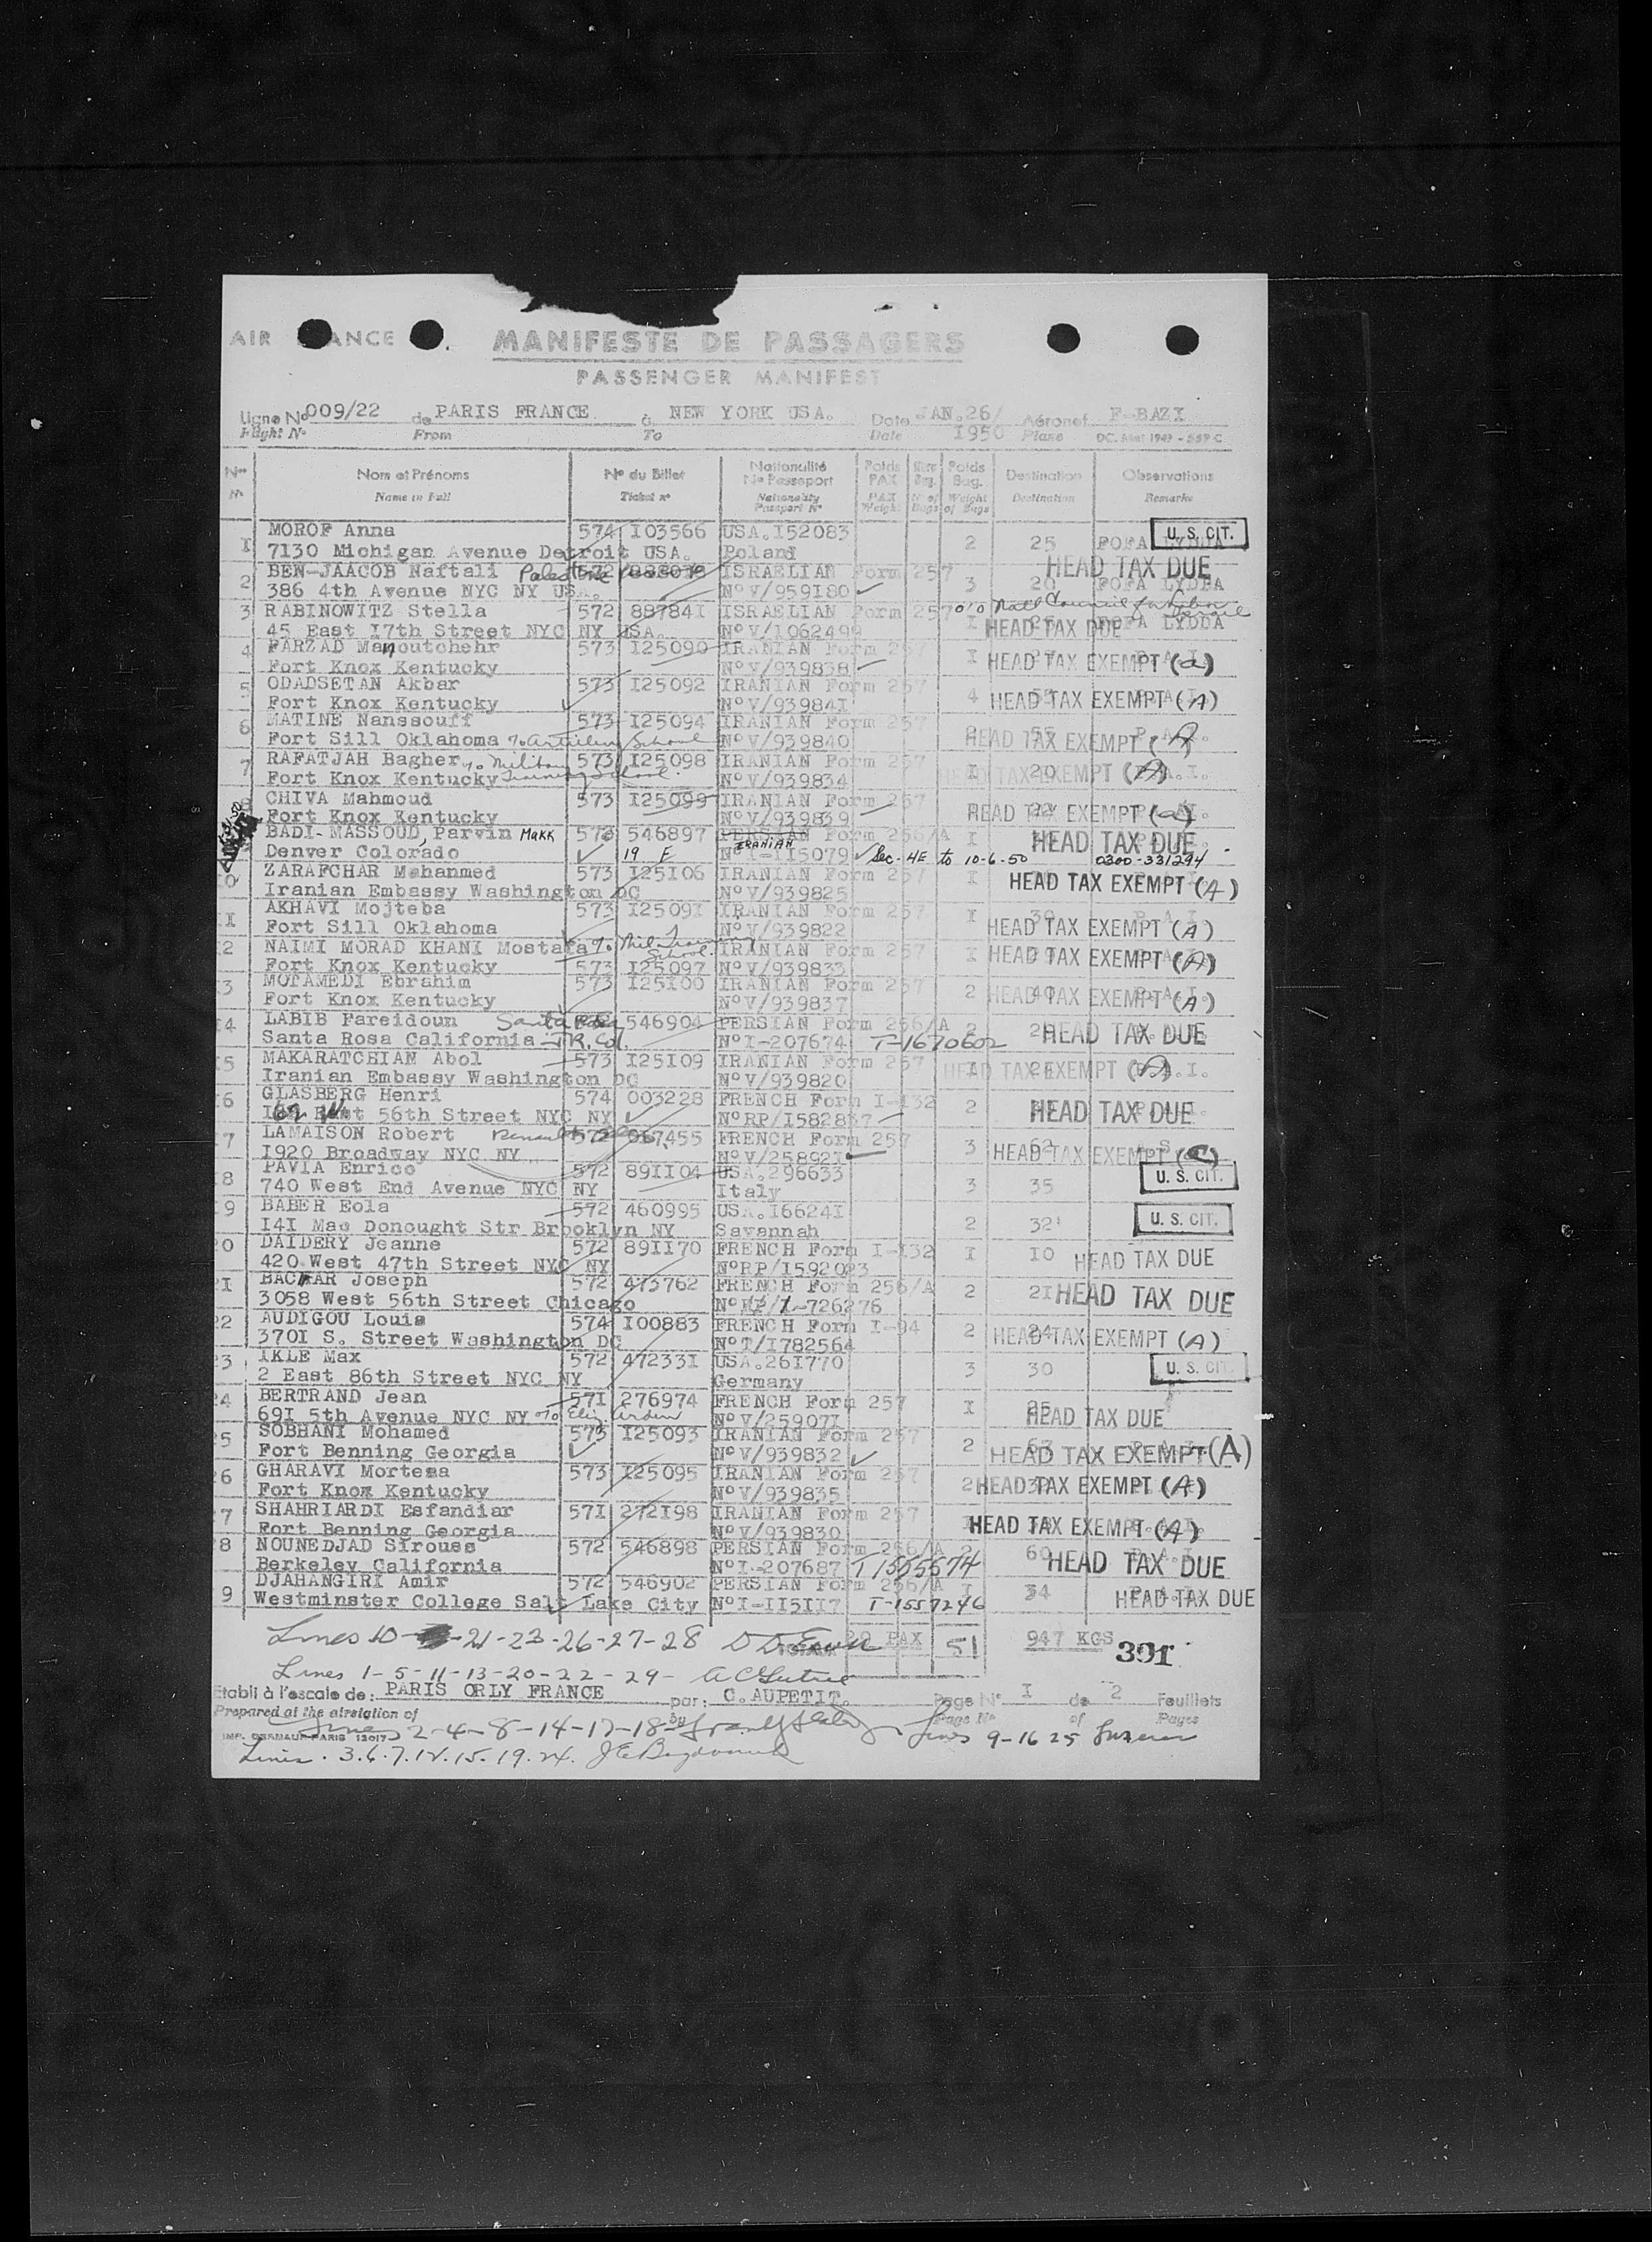 AIR ANCE
MANIFESTE DE PASSAGERS
PASSENGER MANIFEST
Ligne No 009/22 de PARIS FRANCE à NEW YORK USA. Date JAN.26/ Aéronef F-BAZX
Flight No From To Date 1950 Plane
Nos Nom et Prénoms No du Billet Nationalité No Passeport Poids PAX Poids Bag. Destination Observations
No Name in Full Ticket no Nationality Passport No PAX Weight No of Bags Weight of Bags Destination Remarks
I MOROF Anna 574 I03566 USA.I52083 2 25 U.S. CIT.
7130 Michigan Avenue Detroit USA. Poland
2 BEN-JAACOB Naftali 572 ISRAELIAN Form 257 3 20 HEAD TAX DUE POFA LYDDA
386 4th Avenue NYC NY USA. NoV/959I80
3 RABINOWITZ Stella 572 88784I ISRAELIAN Form 257 I HEAD TAX DUE LYDDA
45 East I7th Street NYC NY USA. NoV/I062499
4 FARZAD Manoutchehr 573 I25090 IRANIAN Form 257 I HEAD TAX EXEMPT (a)
Fort Knox Kentucky NoV/939838
5 ODADSETAN Akbar 573 I25092 IRANIAN Form 257 4 HEAD TAX EXEMPT (A)
Fort Knox Kentucky NoV/93984I
6 MATINE Nanssouff 573 I25094 IRANIAN Form 257 HEAD TAX EXEMPT (A)
Fort Sill Oklahoma % Artillery School NoV/939840
7 RAFATJAH Bagher % Military 573 I25098 IRANIAN Form 257 I 20 HEAD TAX EXEMPT (A)
Fort Knox Kentucky Training School. NoV/939834
CHIVA Mahmoud 573 I25099 IRANIAN Form 257 HEAD TAX EXEMPT (a)
Fort Knox Kentucky NoV/939839
BADI-MASSOUD, Parvin Makk 546897 PERSIAN Form 256/A HEAD TAX DUE
IRANIAN
Denver Colorado 19 F NoI-II5079 Sec. 4E to 10-6-50 0300-331294
0 ZARAFCHAR Mohanmed 573 I25106 IRANIAN Form 257 I HEAD TAX EXEMPT (A)
Iranian Embassy Washington DC NoV/939825
I AKHAVI Mojteba 573 I2509I IRANIAN Form 257 I HEAD TAX EXEMPT (A)
Fort Sill Oklahoma NoV/939822
2 NAIMI MORAD KHANI Mostafa % Mil. Training School. IRANIAN Form 257 I HEAD TAX EXEMPT (A)
Fort Knox Kentucky 573 I25097 NoV/939833
3 MOTAMEDI Ebrahim 573 I25I00 IRANIAN Form 257 2 HEAD TAX EXEMPT (A)
Fort Knox Kentucky NoV/939837
4 LABIB Fareidoun Santa Rosa 546904 PERSIAN Form 256/A 2 HEAD TAX DUE
Santa Rosa California JR. Col. NoI-207674 T-1670602
5 MAKARATCHIAN Abol 573 I25I09 IRANIAN Form 257 HEAD TAX EXEMPT (A)
Iranian Embassy Washington DC NoV/939820
6 GLASBERG Henri 574 003228 FRENCH Form I-I32 2 HEAD TAX DUE
56th Street NYC NY NoRP/I582837
7 LAMAISON Robert 572 FRENCH Form 257 3 62 HEAD TAX EXEMPT
I920 Broadway NYC NY NoV/25892I
8 PAVIA Enrico 572 89II04 USA.296633 3 35 U.S. CIT.
740 West End Avenue NYC NY Italy
9 BABER Eola 572 460995 USA.I6624I 2 32 U.S. CIT.
I4I Mac Donought Str Brooklyn NY Savannah
0 DAIDERY Jeanne 572 89II70 FRENCH Form I-I32 I IO HEAD TAX DUE
420 West 47th Street NYC NY NoRP/I592023
I BACHAR Joseph 572 473762 FRENCH Form 256/A 2 2I HEAD TAX DUE
3058 West 56th Street Chicago No I-726276
22 AUDIGOU Louis 574 I00883 FRENCH Form I-94 2 24 HEAD TAX EXEMPT (A)
370I S. Street Washington DC NoT/I782564
3 IKLE Max 572 47233I USA.26I770 3 30 U.S. CIT.
2 East 86th Street NYC NY Germany
4 BERTRAND Jean 57I 276974 FRENCH Form 257 I HEAD TAX DUE
69I 5th Avenue NYC NY % Eliz. Arden NoV/25907I
5 SOBHANI Mohamed 573 I25093 IRANIAN Form 257 2 HEAD TAX EXEMPT (A)
Fort Benning Georgia NoV/939832
6 GHARAVI Mortesa 573 I25095 IRANIAN Form 257 2 HEAD TAX EXEMPT (A)
Fort Knox Kentucky NoV/939835
7 SHAHRIARDI Esfandiar 57I 272I98 IRANIAN Form 257 HEAD TAX EXEMPT (A)
Fort Benning Georgia NoV/939830
8 NOUNEDJAD Sirouss 572 546898 PERSIAN Form 256/A 2 60 HEAD TAX DUE
Berkeley California NoI-207687 T1555574
9 DJAHANGIRI Amir 572 546902 PERSIAN Form 256/A I 34 HEAD TAX DUE
Westminster College Salt Lake City NoI-II5II7 T-1557246
Lines 10- -21-23-26-27-28 PAX 51 947 KGS 391
Lines 1-5-11-13-20-22-29-
Etabli à l'escale de: PARIS ORLY FRANCE par: C.AUPETIT. Page No I de 2 Feuillets
Prepared at the airstation of by Page No of Pages
Lines 2-4-8-14-17-18- Lines 9-16 25
Lines. 3.6.7.12.15.19.24.